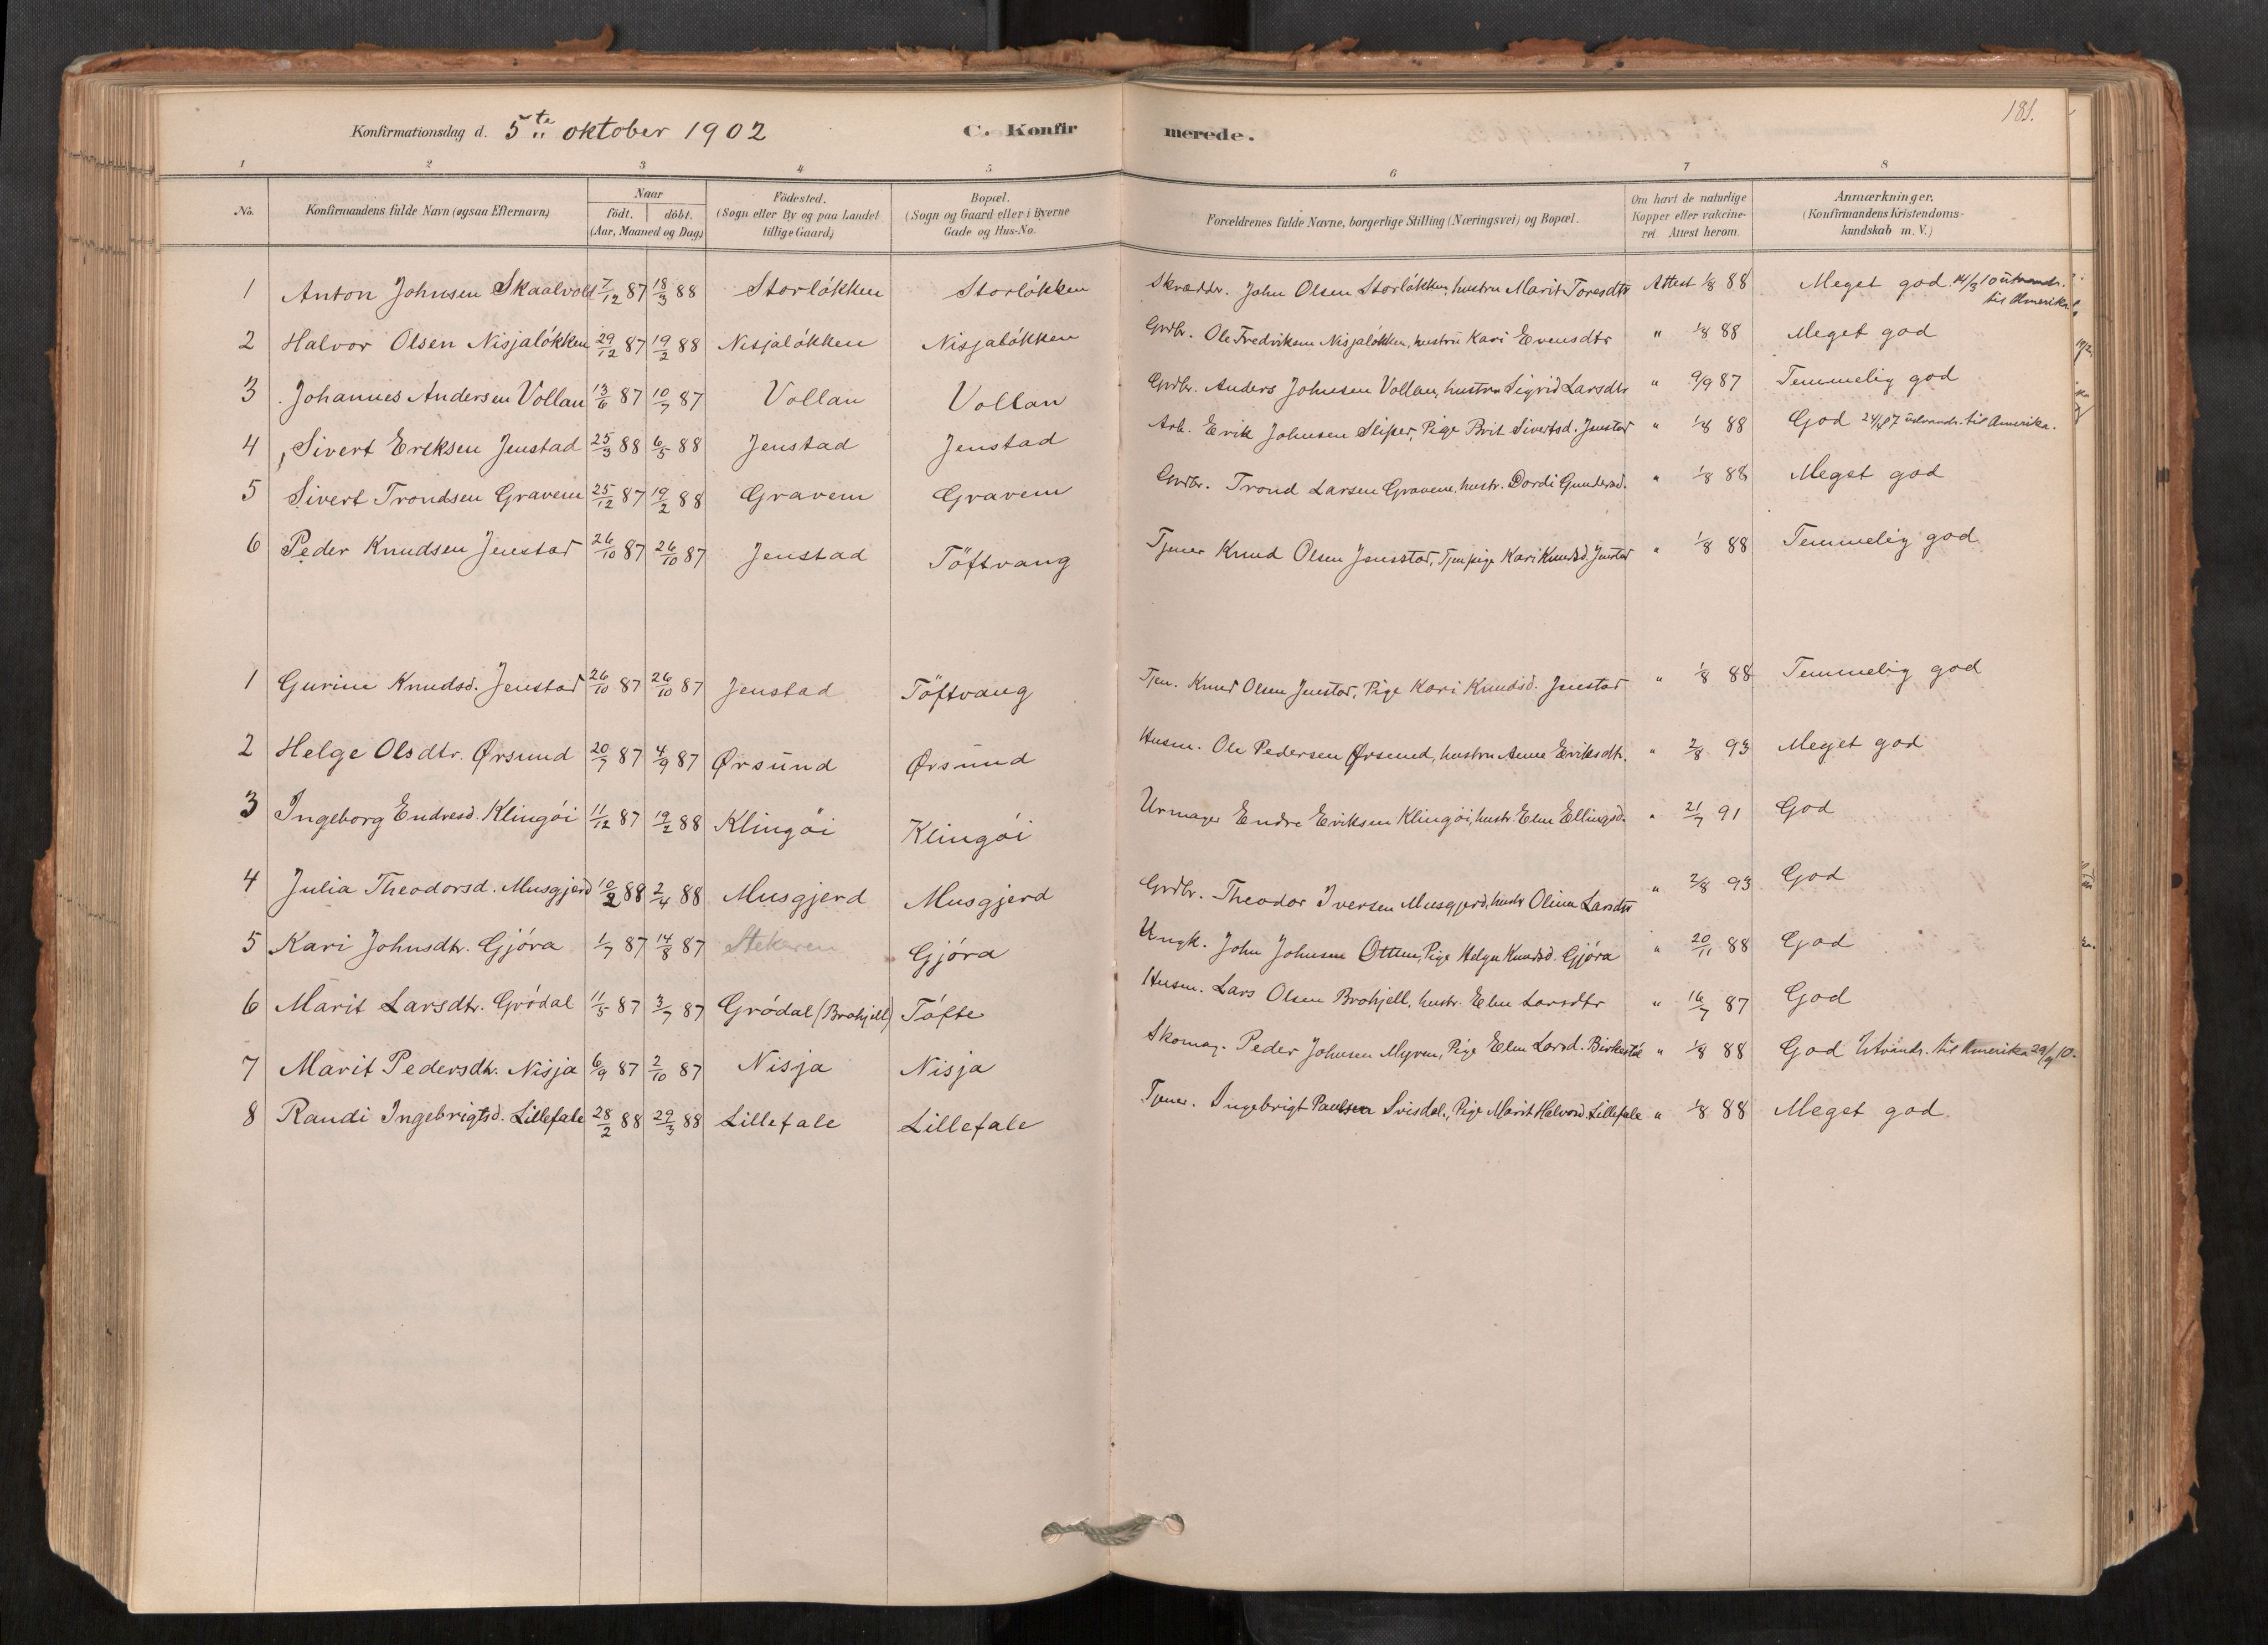 181.
Konfirmationsdag d. 5te oktober 1902 C. Konfirmerede.
1 2 3 4 5 6 7 8
No. Konfirmandens fulde Navn (ogsaa Efternavn) Naar födt. döbt. (Aar, Maaned og Dag.) Födested. (Sogn eller By og paa Landet tillige Gaard.) Bopæl. (Sogn og Gaard eller i Byerne Gade og Hus-No. Forældrenes fulde Navne, borgerlige Stilling (Næringsvei) og Bopæl. Om havt de naturlige Kopper eller vakcineret. Attest herom. Anmærkninger. (Konfirmandens Kristendomskundskab m. V.)
1 Anton Johnsen Skaalvold 7/12 87 18/3 88 Storløkken Storløkken Skrædder. John Olsen Storløkken, hustru Marit Toresdtr Attest 1/8 88 Meget god. 14/3 10 utvandr. til Amerika
2 Halvor Olsen Nisjaløkken 29/12 87 19/2 88 Nisjaløkken Nisjaløkken Grdbr. Ole Fredriksen Nisjaløkken, hustru Kari Evensdtr " 1/8 88 Meget god
3 Johannes Andersen Vollan 13/6 87 10/7 87 Vollan Vollan Grdbr. Anders Johnsen Vollan, hustru Sigrid Larsdtr " 9/9 87 Temmelig god
4 Sivert Eriksen Jenstad 25/3 88 6/5 88 Jenstad Jenstad Arb. Erik Johnsen Sliper, Pige Brit Sivertsd. Jenstad " 1/8 88 God 24/4 07 udvandr. til Amerika.
5 Sivert Trondsen Gravem 25/12 87 19/2 88 Gravem Gravem Grdbr. Trond Larsen Gravem, hustr. Dordi Gundersd. " 1/8 88 Meget god
6 Peder Knudsen Jenstad 26/10 87 26/10 87 Jenstad Töftvang Tjener Knud Olsen Jenstad, Tjen.pige Kari Knudsd. Jenstad " 1/8 88 Temmelig god
1 Gurine Knudsd. Jenstad 26/10 87 26/10 87 Jenstad Töftvang Tjen. Knud Olsen Jenstad, Pige Kari Knudsd. Jenstad " 1/8 88 Temmelig god
2 Helge Olsdtr. Ørsund 20/7 87 4/9 87 Ørsund Ørsund Husm. Ole Pedersen Ørsund, hustru Anne Eriksdtr. " 2/8 93 Meget god
3 Ingeborg Endresd. Klingøi 11/12 87 19/2 88 Klingøi Klingøi Urmager Endre Eriksen Klingøi, hustr. Elen Ellingsd. " 21/7 91 God
4 Julia Theodorsd. Musgjerd 10/2 88 2/4 88 Musgjerd Musgjerd Grdbr. Theodor Iversen Musgjerd, hustr Olina Larsdtr " 2/8 93 God
5 Kari Johnsdtr. Gjøra 1/7 87 14/8 87 Gjøra Ungk. John Johnsen Ottem, Pige Helga Knudsd. Gjøra " 20/11 88 God
6 Marit Larsdtr. Grødal 11/5 87 3/7 87 Grødal (Brøhjell) Tøfte Husm. Lars Olsen Brøhjell, hustr. Elen Larsdtr " 16/7 87 God
7 Marit Pedersdtr. Nisja 6/9 87 2/10 87 Nisja Nisja Skomag. Peder Johnsen Myren, Pige Elen Larsd. " 1/8 88 God Utvandr. til Amerika 29/9 10.
8 Randi Ingebrigtsd. Lillefale 28/2 88 29/3 88 Lillefale Lillefale Tjener. Ingebrigt Paulsen Svisdal., Pige Marit Halvorsd. Lillefale " 1/8 88 Meget god